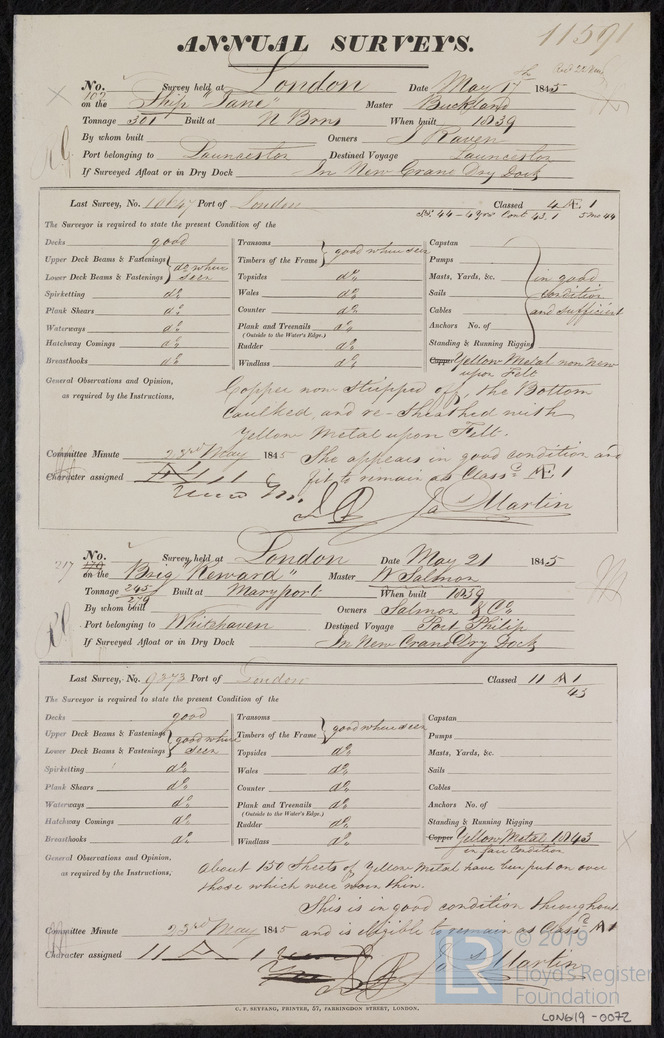 11591
ANNUAL SURVEYS.
No. 102 Survey held at London Date May 17th 1845
on the Ship "Jane" Master Buckland
Tonnage 301 Built at N Brns When built 1839
By whom built Owners J Raven
Port belonging to Launceston Destined Voyage Launceston
If Surveyed Afloat or in Dry Dock In New Crane Dry Dock
Last Survey, No. 10647 Port of London Classed 4 Æ 1
The Surveyor is required to state the present Condition of the
Decks good
Upper Deck Beams & Fastenings
Lower Deck Beams & Fastenings } do where seen
Spirketting do
Plank Shears do
Waterways do
Hatchway Comings do
Breasthooks do
Transoms
Timbers of the Frame } good where seen
Topsides do
Wales do
Counter do
Plank and Treenails do
(Outside to the Water's Edge.)
Rudder do
Windlass do
Capstan
Pumps
Masts, Yards, &c.
Sails
Cables
Anchors No. of
Standing & Running Rigging
} in good condition and sufficient
Copper Yellow Metal now New upon Felt
General Observations and Opinion,
as required by the Instructions,
Copper now stripped off, the Bottom
Caulked, and re-sheathed with
Yellow Metal upon Felt.
She appears in good condition and
fit to remain as Classd Æ 1
Committee Minute 23rd May 1845
Character assigned
Ja Martin
No. 170 Survey held at London Date May 21 1845
217
on the Brig "Reward" Master W Salmon
Tonnage 245 Built at Maryport When built 1839
279
By whom built Owners Salmon & Co
Port belonging to Whitehaven Destined Voyage Port Philip
If Surveyed Afloat or in Dry Dock In New Crane Dry Dock
Last Survey, No. 9373 Port of London Classed 11 A 1
43
The Surveyor is required to state the present Condition of the
Decks good
Upper Deck Beams & Fastenings
Lower Deck Beams & Fastenings } good where seen
Spirketting do
Plank Shears do
Waterways do
Hatchway Comings do
Breasthooks do
Transoms
Timbers of the Frame } good where seen
Topsides do
Wales do
Counter do
Plank and Treenails do
(Outside to the Water's Edge.)
Rudder do
Windlass do
Capstan
Pumps
Masts, Yards, &c.
Sails
Cables
Anchors No. of
Standing & Running Rigging
Copper Yellow Metal 1843
in fair condition
General Observations and Opinion,
as required by the Instructions,
About 150 Sheets of Yellow Metal have been put on over
those which were worn thin.
This is in good condition throughout
and is eligible to remain as Classd A 1
Committee Minute 23rd May 1845
Character assigned 11 A 1
Ja Martin
C. F. SEYFANG, PRINTER, 57, FARRINGDON STREET, LONDON.
LR © 2019
Lloyd's Register
Foundation
LON619-0072